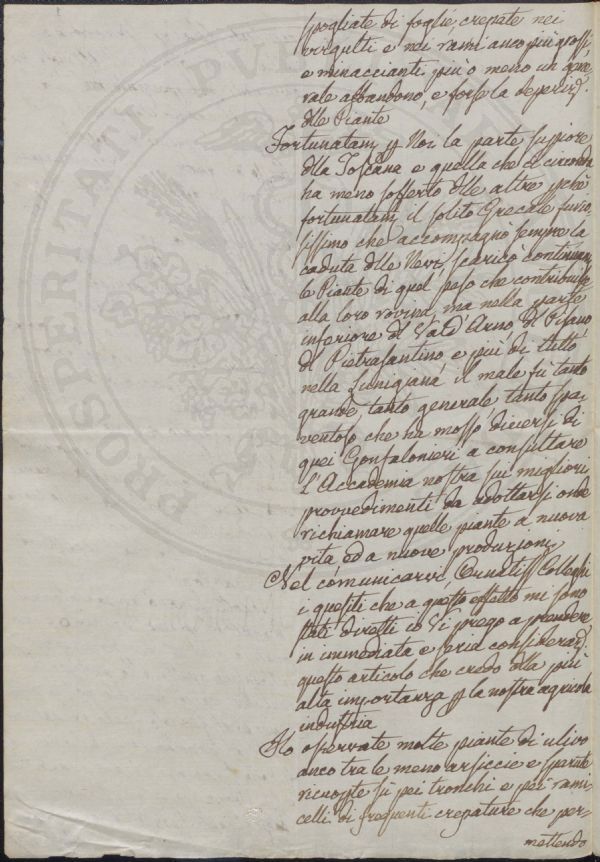 spogliate di foglie, crepate nei
virgulti e nei rami anco più grossi,
e minaccianti più o meno un gene-
rale abbandono, e forse la deperiz.
dlle Piante
Fortunatam. p Noi la parte supiore
dlla Toscana e quella che ci circonda
ha meno sofferto dlle altre pchè
fortunatam. il solito Grecale furio-
sissimo che accompagnò sempre la
caduta dlle Nevi, scaricò continuam.
le Piante di quel peso che contribuisce
alla loro rovina, ma nella parte
inferiore dl Val d'Arno dl Pisano
dl Pietrasantino e più di tutto
nella Lunigiana il male fù tanto
grande, tanto generale tanto spa-
ventoso che ha mosso diversi di
quei Gonfalonieri a consultare
l'Accademia nostra sui migliori
provvedimenti da adottarsi onde
richiamare quelle piante a nuova
vita ed a nuove produzioni
Nel comunicarvi, Ornatiss. Colleghi
i quesiti che a questo effetto mi sono
stati diretti io Vi prego a prendere
in immediata e seria consideraz.
questo articolo che credo dlla più
alta importanza p la nostra agricola
industria
Ho osservate molte piante di ulivo
anco tra le meno arsiccie e
ricuopte sì pei tronchi e pei rami-
celli di frequenti crepature che per-
mettendo
PROSPERITATI PVBLICAE